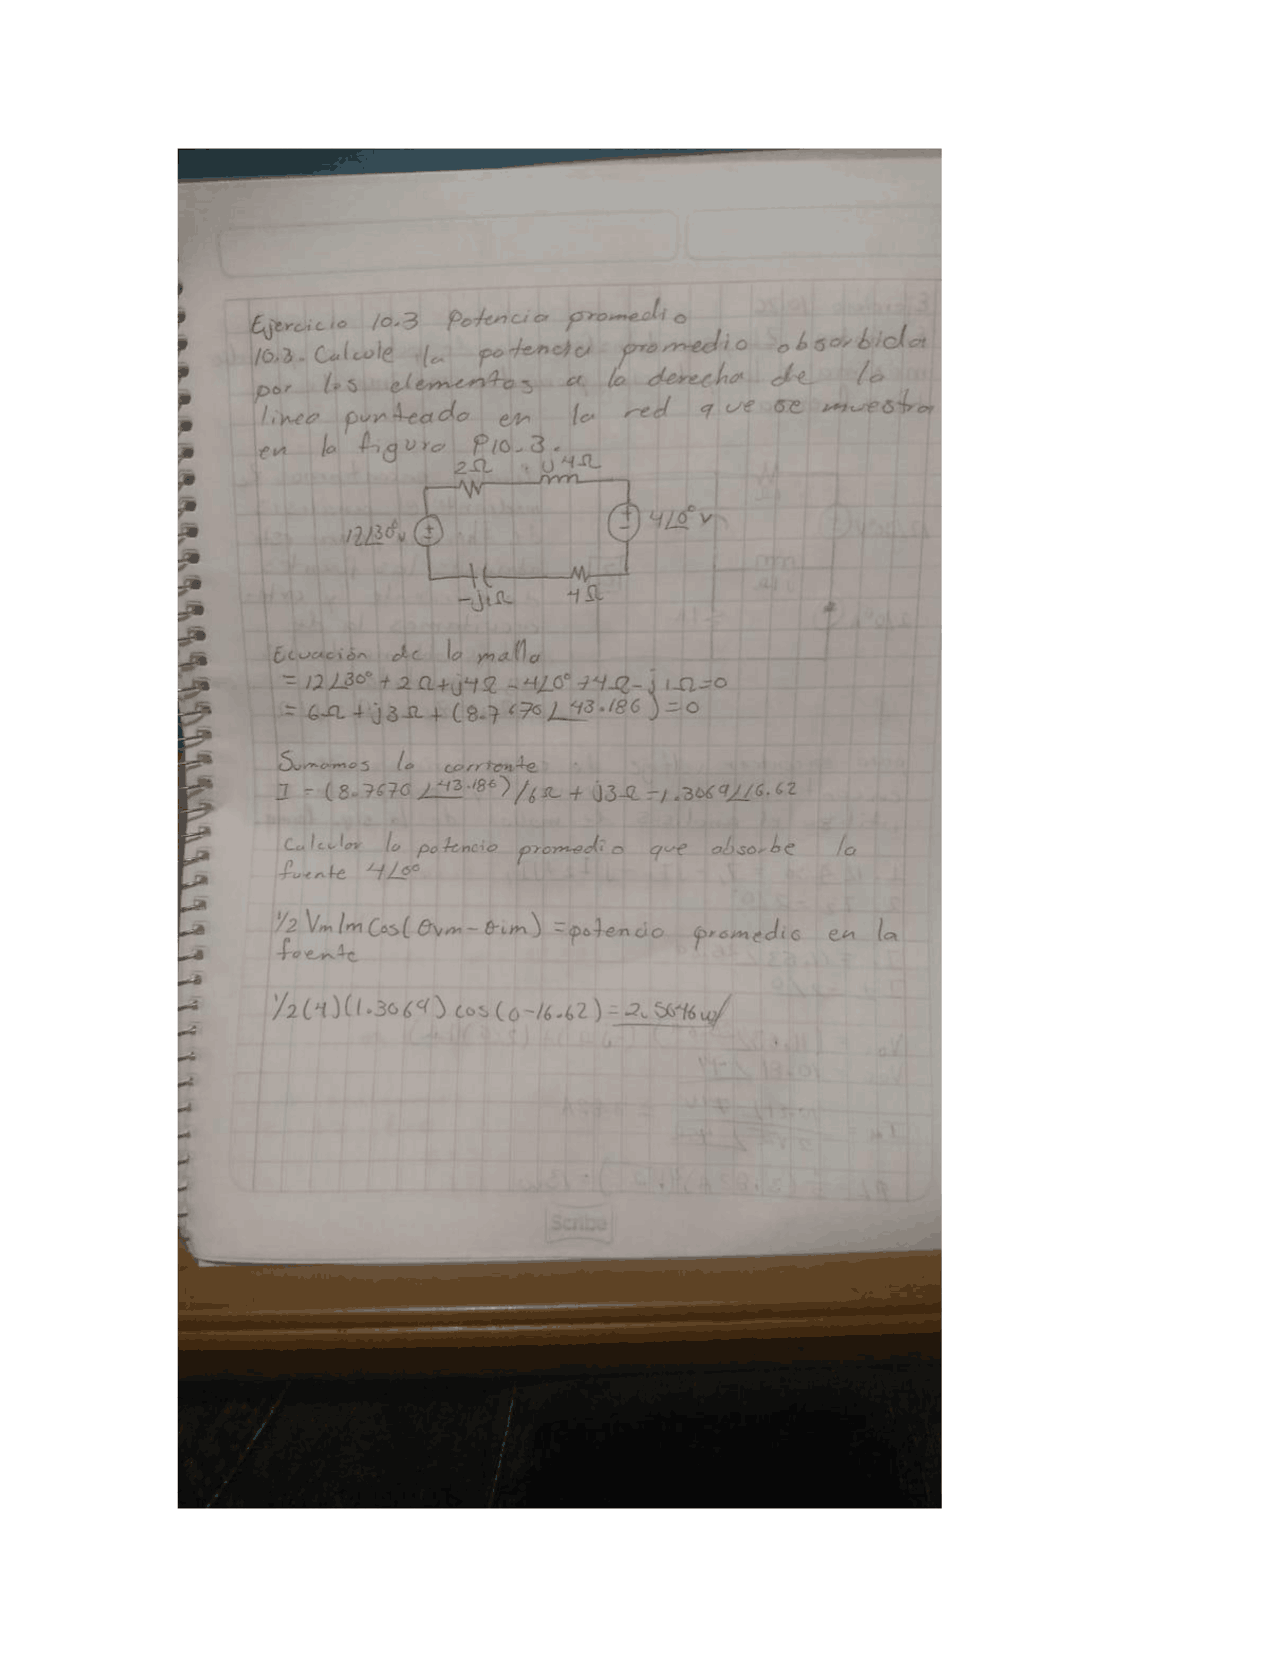 Ejercicio 10.3 Potencia promedio
10.3. Calcule la potencia promedio absorbida
por los elementos a la derecha de la
linea punteada en la red que se muestra
en la figura P10.3.
2Ω j4Ω
12∠30°v 4∠0° v
-j1Ω 4Ω
Ecuación de la malla
= 12∠30° + 2Ω + j4Ω - 4∠0° + 4Ω - j1Ω = 0
= 6Ω + j3Ω + (8.7670∠43.186) = 0
Sumamos la corriente
I = (8.7670∠43.186)/6Ω + j3Ω = 1.3069∠16.62
Calcular la potencia promedio que absorbe la
fuente 4∠0°
1/2 Vm Im Cos(θvm - θim) = potencia promedio en la
fuente
1/2(4)(1.3069) cos(0-16.62) = 2.5046 w
Scribe